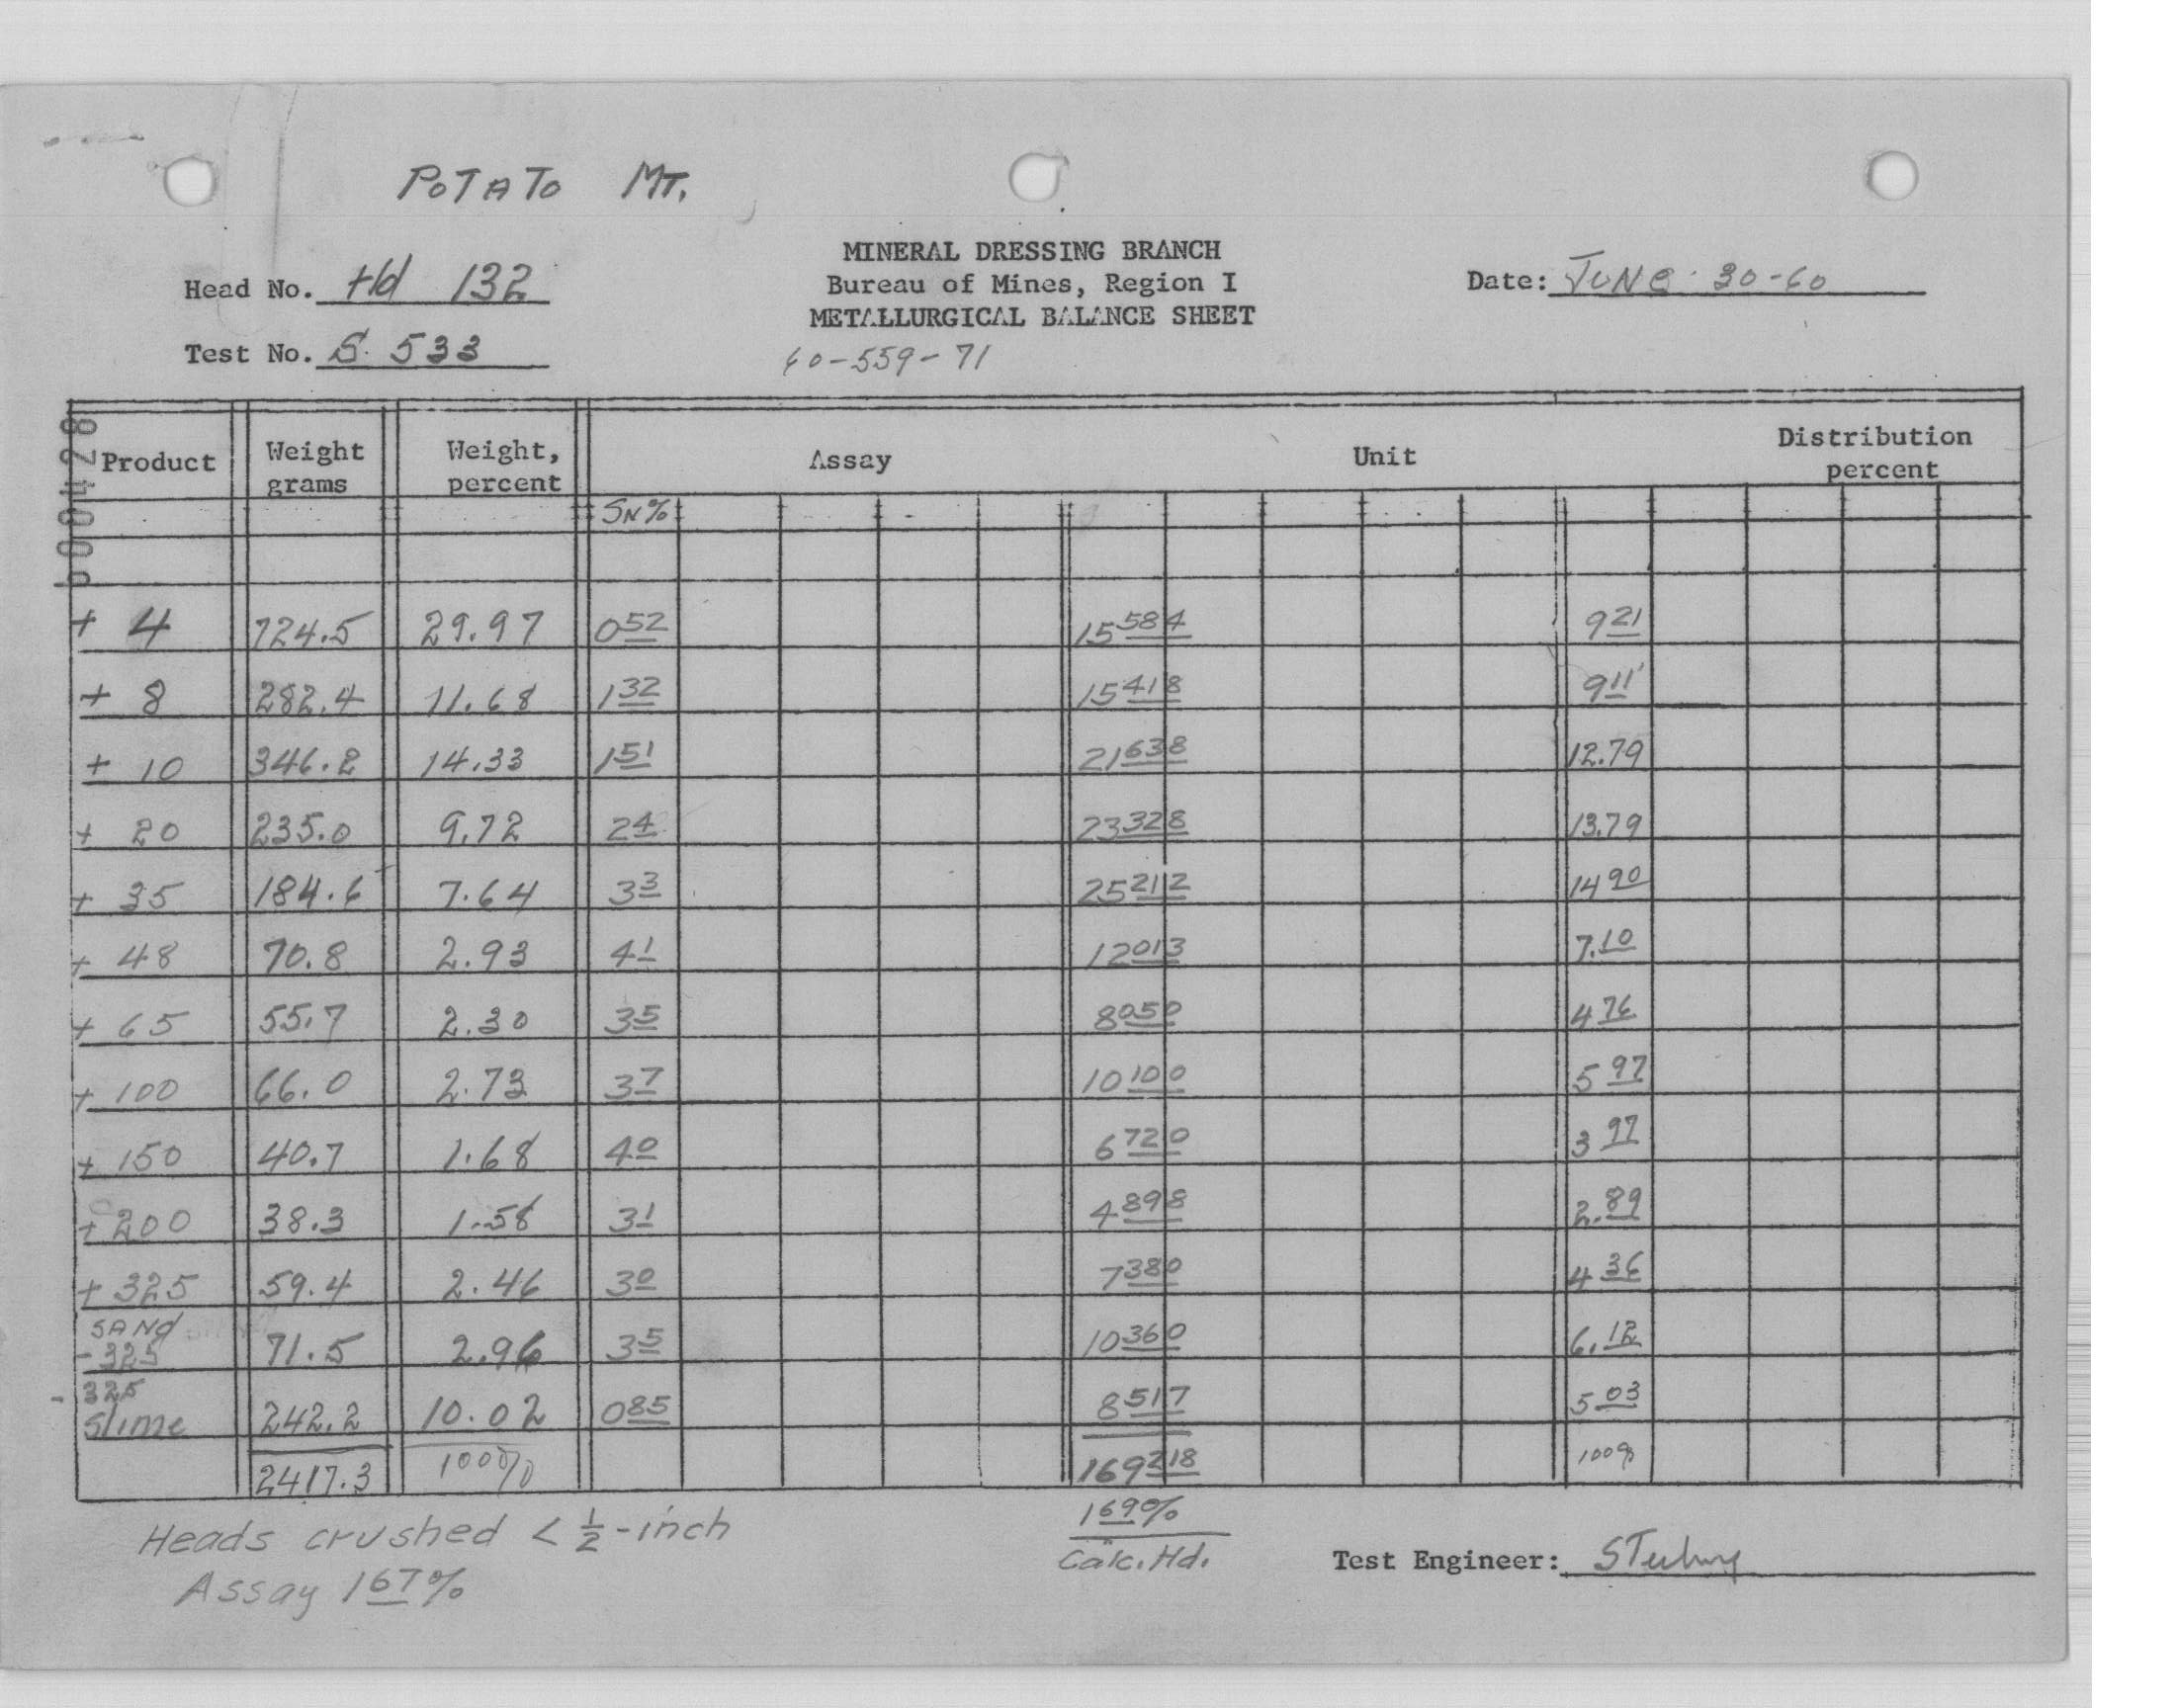 POTATO MT.
MINERAL DRESSING BRANCH
Head No. Hd 132
Bureau of Mines, Region I
Date: JUNE 30-60
METALLURGICAL BALANCE SHEET
Test No. S. 533
60-559-71
82400
Product Weight grams Weight, percent Assay Unit Distribution percent
SN%
+ 4 724.5 29.97 0.52 15.584 9.21
+ 8 282.4 11.68 1.32 15.418 9.11
+ 10 346.2 14.33 1.51 21.638 12.79
+ 20 235.0 9.72 2.4 23.328 13.79
+ 35 184.6 7.64 3.3 25.212 14.90
+ 48 70.8 2.93 4.1 12.013 7.10
+ 65 55.7 2.30 3.5 8.050 4.76
+ 100 66.0 2.73 3.7 10.100 5.97
+ 150 40.7 1.68 4.0 6.720 3.97
+ 200 38.3 1.58 3.1 4.898 2.89
+ 325 59.4 2.46 3.0 7.380 4.36
SAND
- 325 71.5 2.96 3.5 10.360 6.12
- 325
Slime 242.2 10.02 0.85 8.517 5.03
2417.3 100% 169.218 100%
Heads crushed < 1/2-inch
1.69%
Assay 1.67%
Calc. Hd.
Test Engineer: